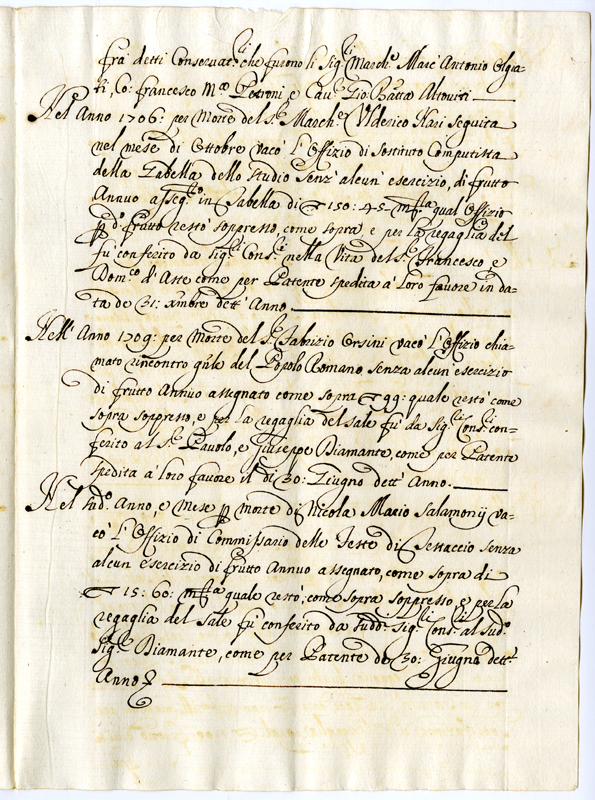 frà detti Conservat.ri che furono li Sig.ri March.e Marc'Antonio Olgia=
ti, Co: Francesco M.a Petroni e Cau.r Gio: Batta Altoviti
Nel Anno 1706: per Morte del S.r March.e Ulderico Nari seguita
nel mese di Ottobre vacò l'Offizio di Sostituto Computista
della Gabella dello studio senz'alcun esercizio, di frutto
Annuo asseg.to in Gabella di 150: 45 m.ta qual Offizio
p d.o frutto restò soppresso, come sopra e per la regaglia del
fu conferito da Sig.ri Cons.ri nella Vita del S.r Francesco e
Dom.co d'Aste come per Patente spedita à loro favore in da=
ta de 31: xmbre dett'Anno
Nell'Anno 1709: per Morte del S.r Fabrizio Orsini vacò l'Offizio chia=
mato rincontro gñle del Popolo Romano senza alcun esercizio
di frutto Annuo assegnato come sopra 99: quale restò come
sopra soppresso, e per la regaglia del sale fù da Sig.ri Cons.ri con=
ferito al S.r Pavolo, e Giuseppe Diamante, come per Patente
spedita à loro favore il dì 30: Giugno dett'Anno.
Nel sud.o Anno, e Mese p morte di Nicola Mario Salamonij va=
cò l'Offizio di Commissario delle Feste di Testaccio senza
alcun esercizio di frutto Annuo assegnato, come sopra di
15: 60: m.ta quale restò, come sopra soppresso, e per la
regaglia del Sale fù conferito da sudd.i Sig.ri Cons.ri al sud.o
Sig.r Diamante, come per Patente de 30: Giugno dett'
Anno